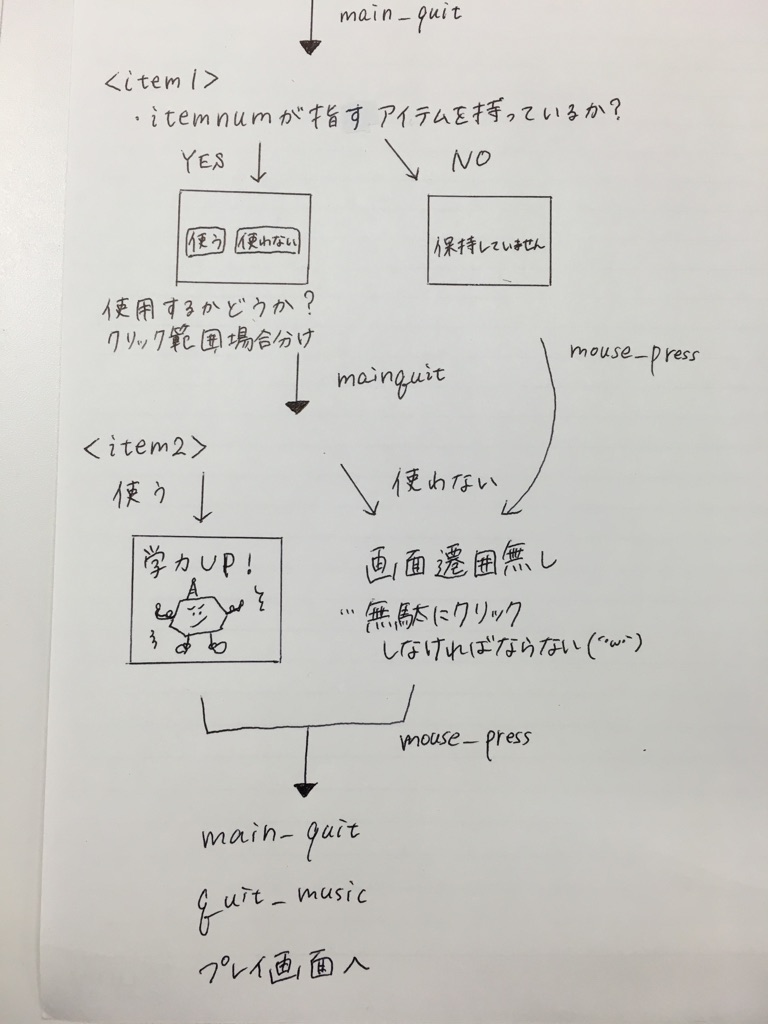 main_quit
<item1>
・itemnumが指す アイテムを持っているか?
YES
NO
使う 使わない
保持していません
使用するかどうか?
クリック範囲場合分け
mouse_press
mainquit
<item2>
使う
使わない
学力UP!
画面遷囲無し
…無駄にクリック
しなければならない(´・ω・`)
mouse_press
main_quit
quit_music
プレイ画面へ